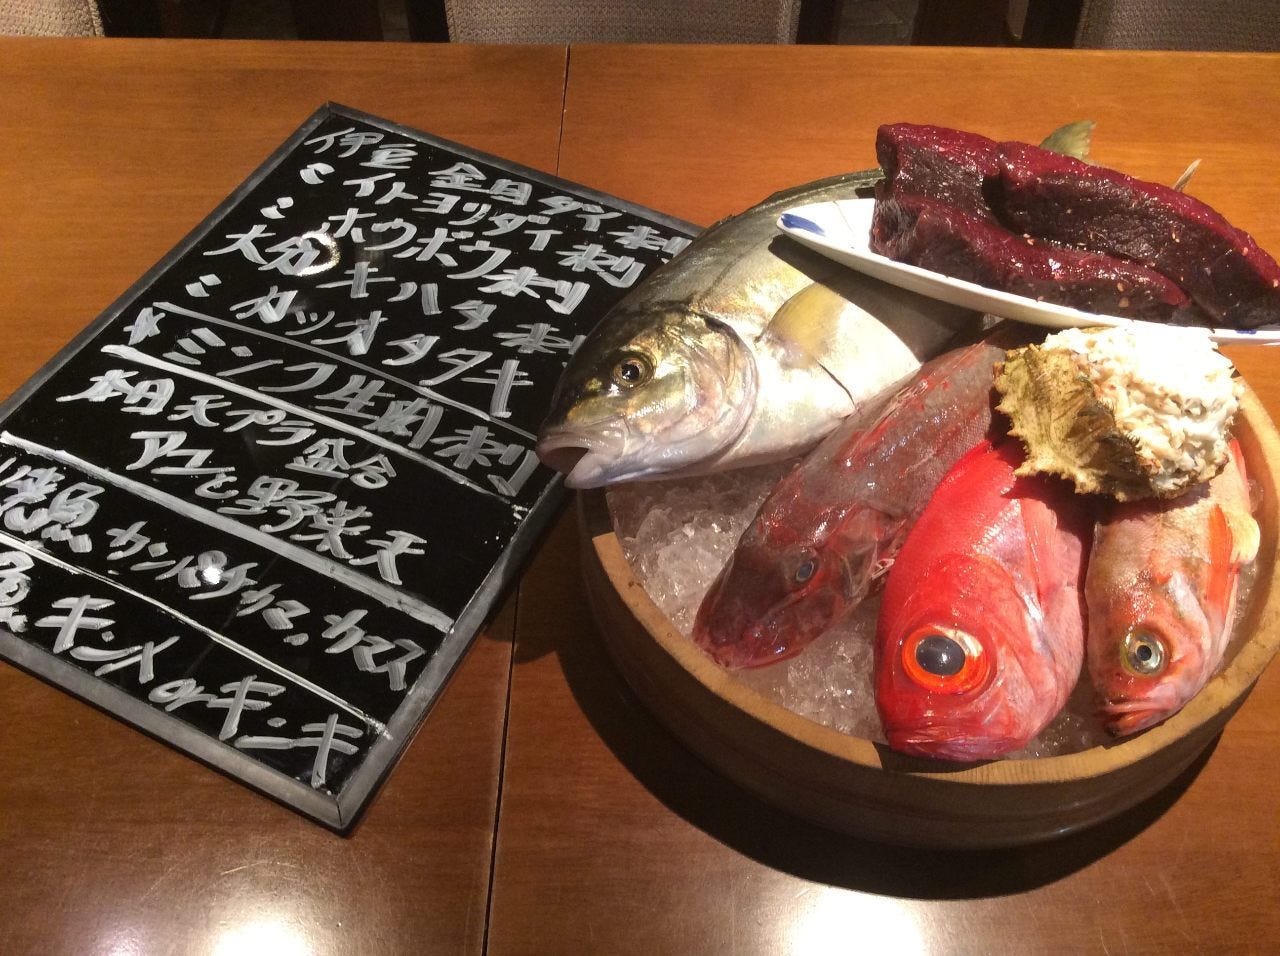 伊豆 金目ダイ刺
〃 イトヨリダイ刺
〃 ホウボウ刺
大分 キハタ刺
〃 カツオタタキ
ミンク生肉刺
本日天プラ盛合
アユと野菜天
焼魚 カンパチカマ、カマス
魚 キンメorキンキ